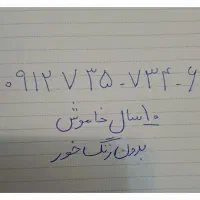 ۰۹۱۲ ۷۳۵۰۷۳۴۰۶
۱۰ سال خاموش
بدون زنگ خور